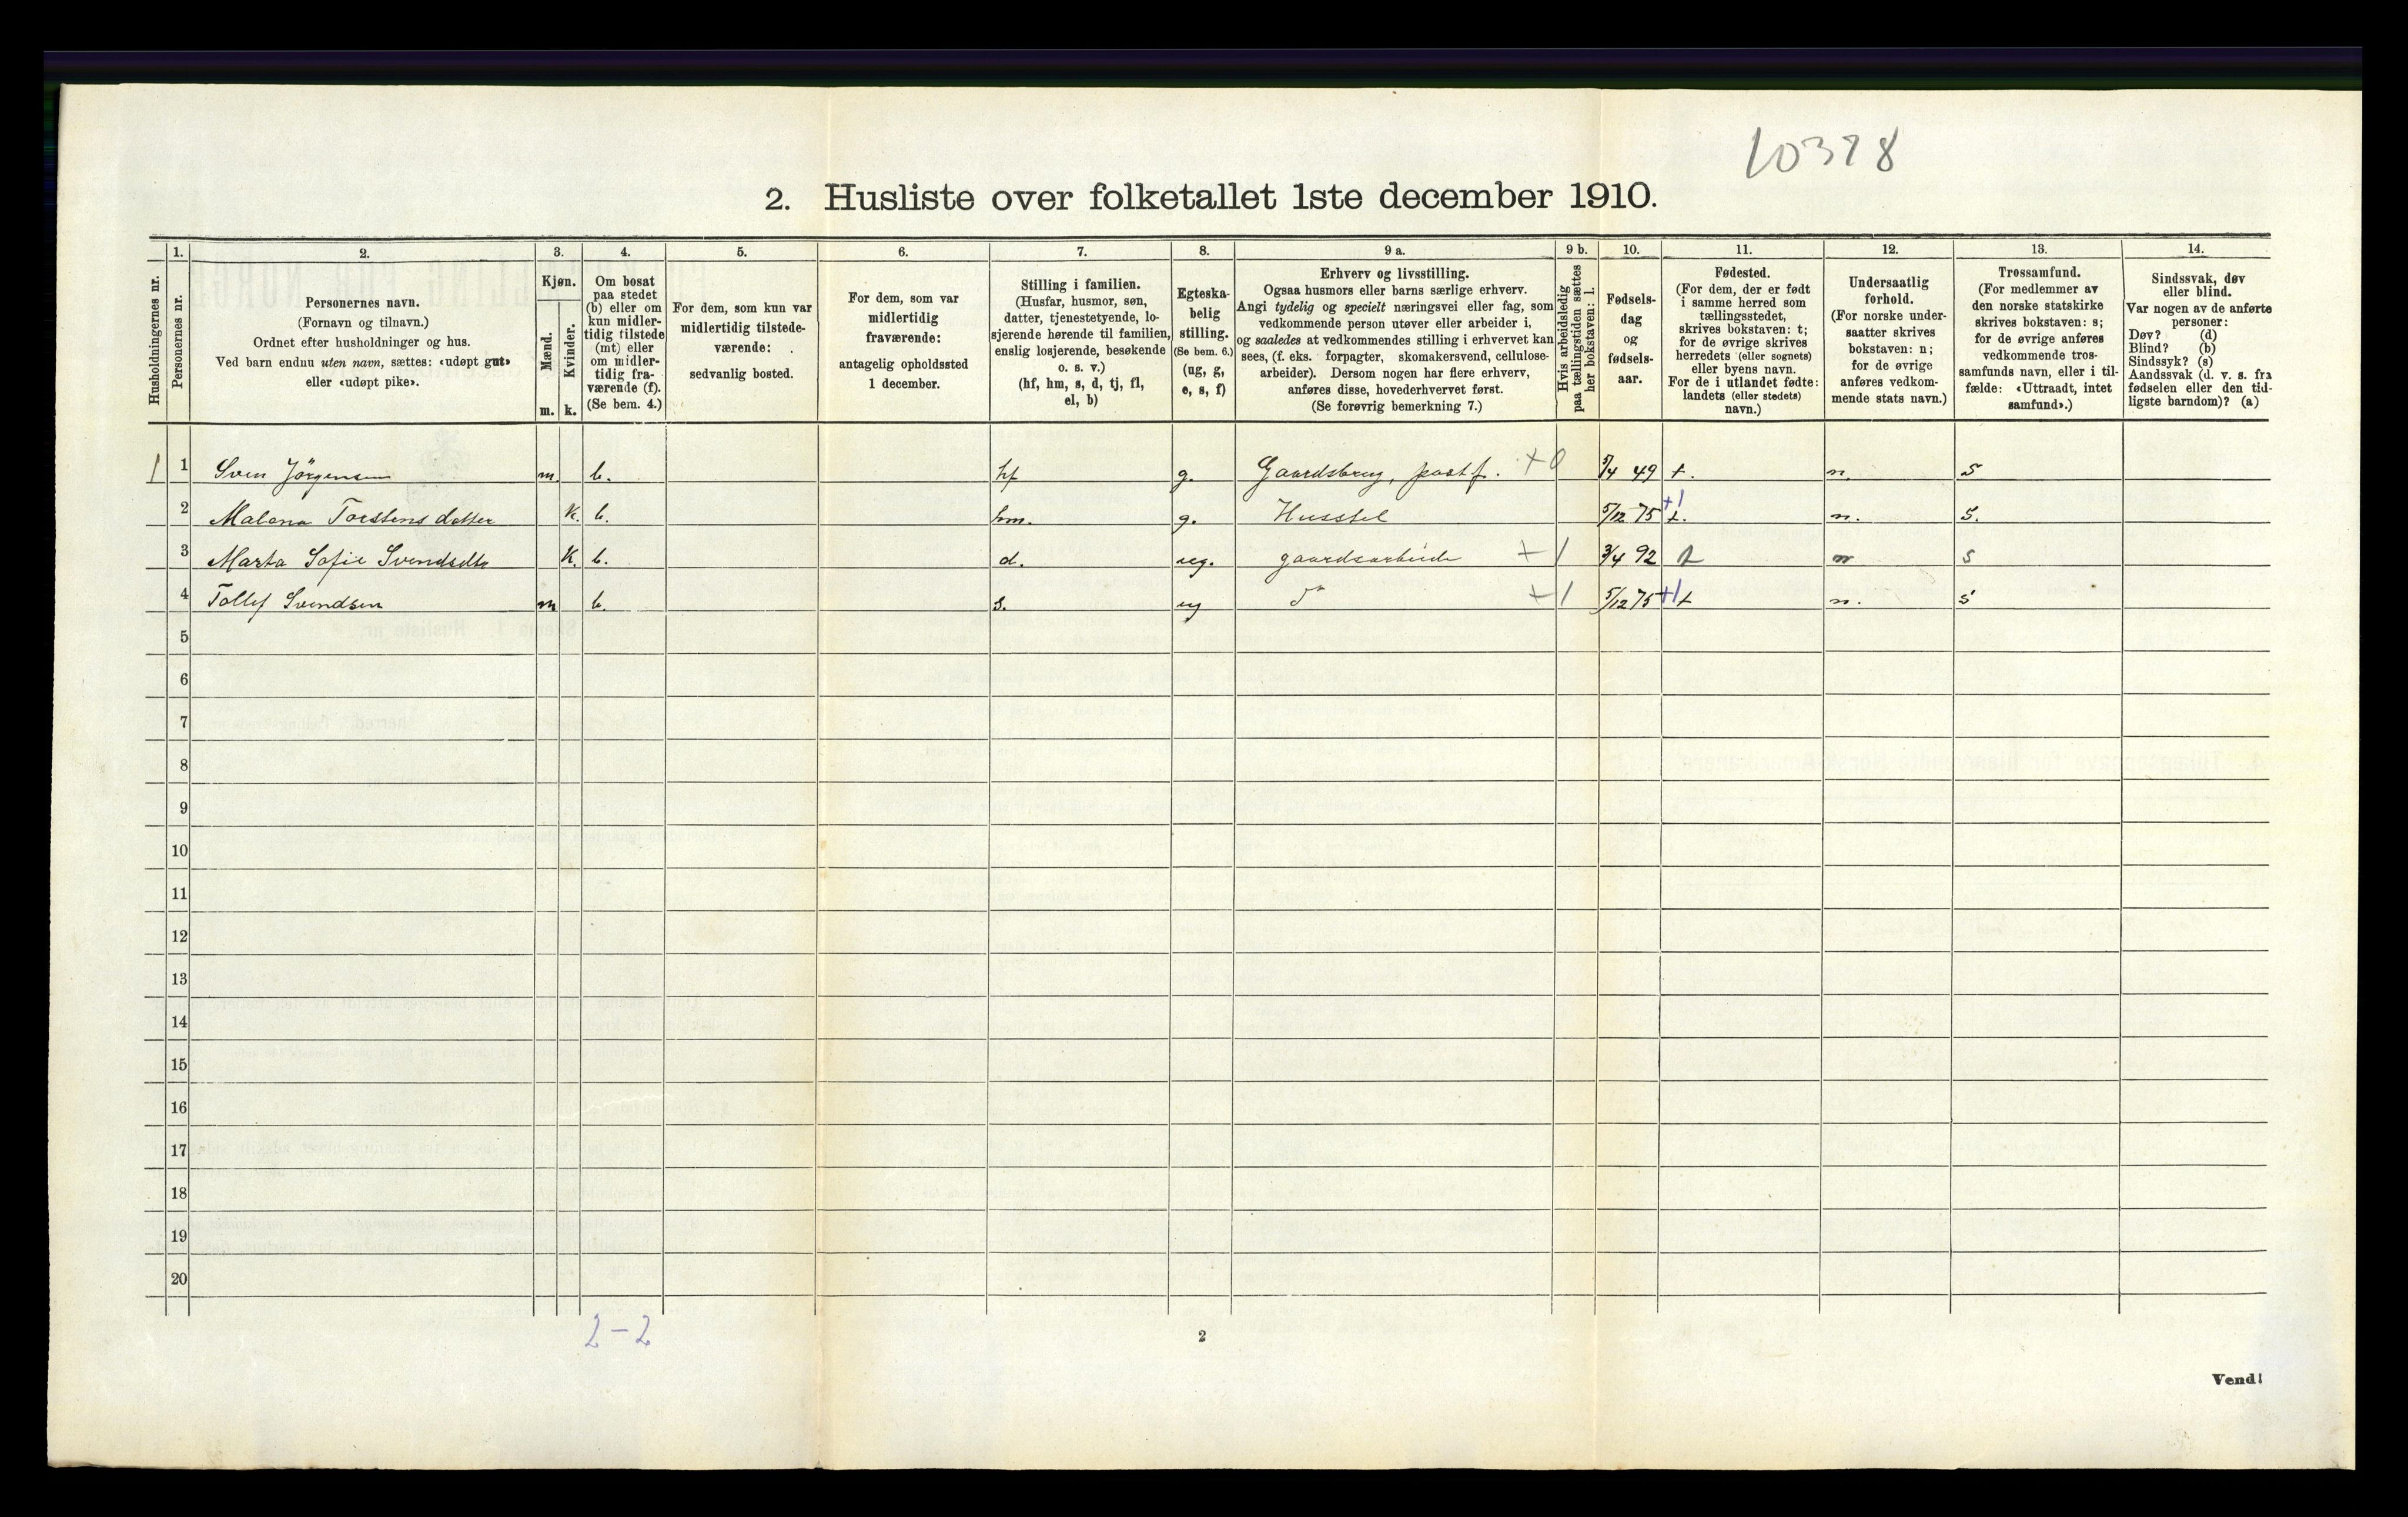 10378
2. Husliste over folketallet 1ste december 1910.
Husholdningernes nr.
1.
Personernes nr.
2.
Personernes navn.
(Fornavn og tilnavn.)
Ordnet efter husholdninger og hus.
Ved barn endnu uten navn, sættes: «udøpt gut»
eller «udøpt pike».
3.
Kjøn.
Mænd.
Kvinder.
m. k.
4.
Om bosat
paa stedet
(b) eller om
kun midler-
tidig tilstede
(mt) eller
om midler-
tidig fra-
værende (f).
(Se bem. 4.)
5.
For dem, som kun var
midlertidig tilstede-
værende:
sedvanlig bosted.
6.
For dem, som var
midlertidig
fraværende:
antagelig opholdssted
1 december.
7.
Stilling i familien.
(Husfar, husmor, søn,
datter, tjenestetyende, lo-
sjerende hørende til familien,
enslig losjerende, besøkende
o. s. v.)
(hf, hm, s, d, tj, fl,
el, b)
8.
Egteska-
belig
stilling.
(Se bem. 6.)
(ug, g,
e, s, f)
9 a.
Erhverv og livsstilling.
Ogsaa husmors eller barns særlige erhverv.
Angi tydelig og specielt næringsvei eller fag, som
vedkommende person utøver eller arbeider i,
og saaledes at vedkommendes stilling i erhvervet kan
sees, (f. eks. forpagter, skomakersvend, cellulose-
arbeider). Dersom nogen har flere erhverv,
anføres disse, hovederhvervet først.
(Se forøvrig bemerkning 7.)
9 b.
Hvis arbeidsledig
paa tællingstiden sættes
her bokstaven: l.
10.
Fødsels-
dag
og
fødsels-
aar.
11.
Fødested.
(For dem, der er født
i samme herred som
tællingsstedet,
skrives bokstaven: t;
for de øvrige skrives
herredets (eller sognets)
eller byens navn.
For de i utlandet fødte:
landets (eller stedets)
navn.)
12.
Undersaatlig
forhold.
(For norske under-
saatter skrives
bokstaven: n;
for de øvrige
anføres vedkom-
mende stats navn.)
13.
Trossamfund.
(For medlemmer av
den norske statskirke
skrives bokstaven: s;
for de øvrige anføres
vedkommende tros-
samfunds navn, eller i til-
fælde: «Uttraadt, intet
samfund».)
14.
Sindssvak, døv
eller blind.
Var nogen av de anførte
personer:
Døv? (d)
Blind? (b)
Sindssyk? (s)
Aandssvak (d. v. s. fra
fødselen eller den tid-
ligste barndom)? (a)
1 1 Sven Jörgensen m. b. hf g. Gaardsbrug, postf. +0 5/4 49 t. n. S
2 Malena Torstensdatter k. b. hm. g. Husstel 5/12 75 +1 t. n. S.
3 Marta Sofie Svendsdtr k. b. d. ug. gaardsarbeide +1 3/4 92 t n s
4 Tollef Svendsen m b. s. ug do +1 5/12 75 +1 t n. s
5
6
7
8
9
10
11
12
13
14
15
16
17
18
19
20
2-2
2
Vend!